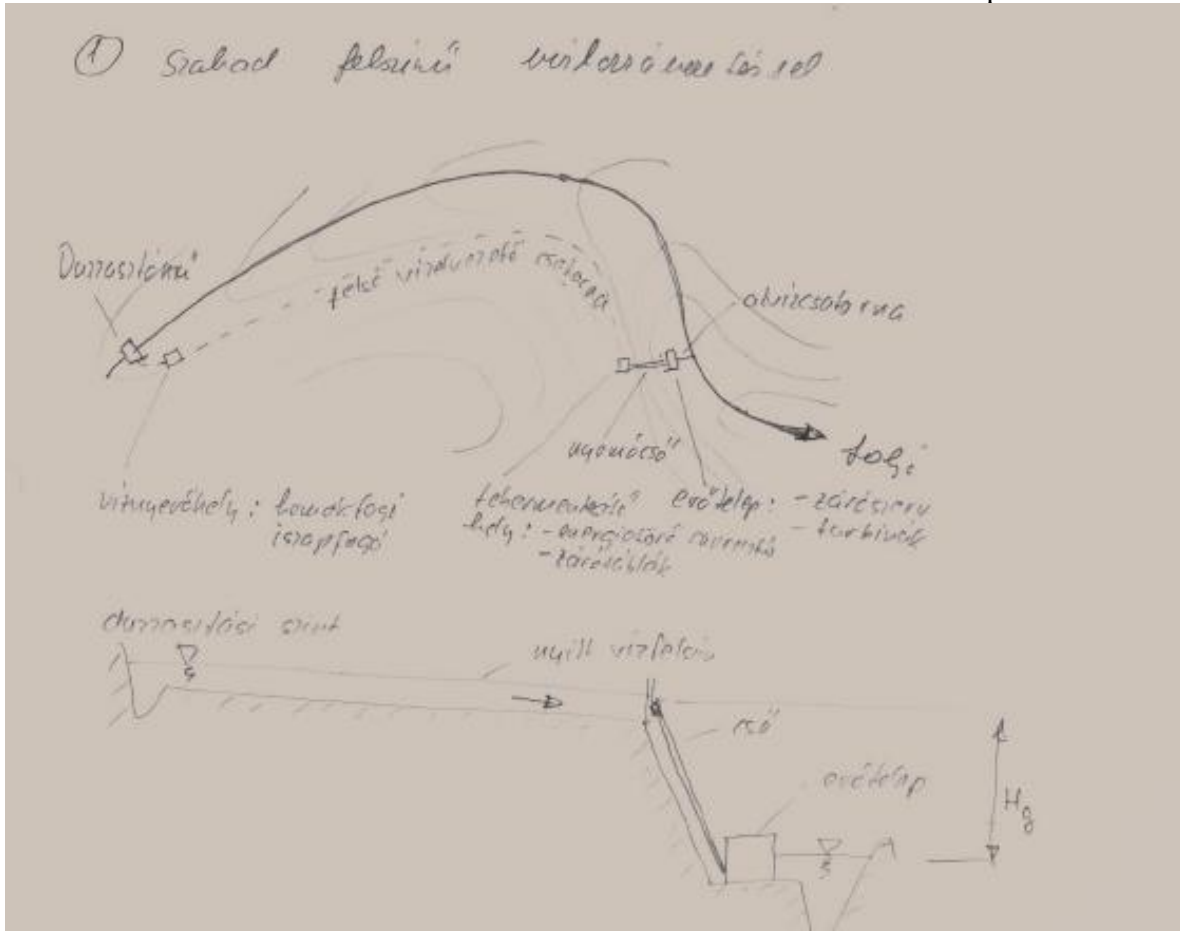 ① Szabad felszínű vízhozzávezetéssel
Duzzasztómű
felső vízvezető csatorna
alvízcsatorna
nyomócső
folyó
víznyerőhely: homokfogó
iszapfogó
tehermentesítő
hely: - energiatörő
- zárótáblák
erőtelep: - zárószerv
- turbinák
duzzasztási szint
nyílt vízfelszín
cső
erőtelep
Hg